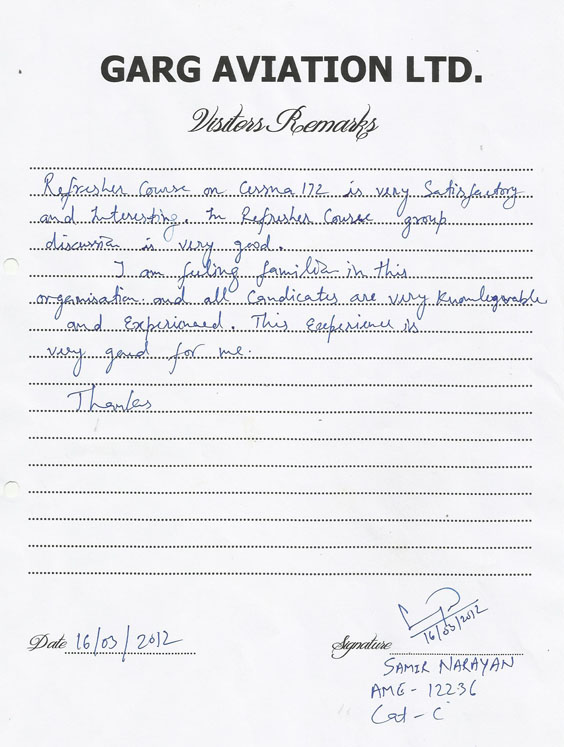 GARG AVIATION LTD.
Visitors Remarks
Refresher Course on Cessna 172 is very Satisfactory
and Interesting. In Refresher Course group
discussion is very good.
I am feeling familiar in this
organisation and all Candicates are very Knowlegwable
and Experienced. This Experience is
very good for me.
Thanks
Date 16/03/2012
Signature
16/03/2012
SAMIR NARAYAN
AME - 12236
Cat - C